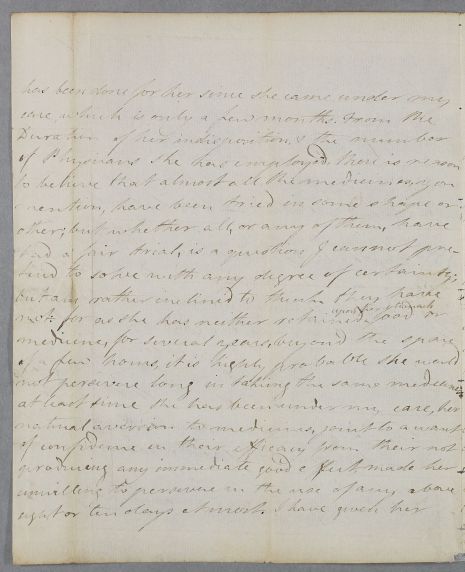 has been done for her since she came under my
care, which is only a few months. From the
Duration of her indisposition, & the number
of Physicians she has employed there is reason
to believe that almost all the medicines, you
mention, have been tried in some shape or
other; but whether all, or any of them, have
had a fair trial, is a question I cannot pre-
tend to solve with any degree of certainty;
but am rather inclined to think they have
not; for as she has neither retained food or
upon her stomach
medicine, for several years, beyond the space
of a few hours, it is highly probable she would
not persevere long in taking the same medicine
at least since she has been under my care, her
natural aversion to medicines, joint to a want
of confidence in their efficacy from their not
producing any immediate good effect made her
unwilling to persevere in the use of any above
eight or ten days at most. I have given her